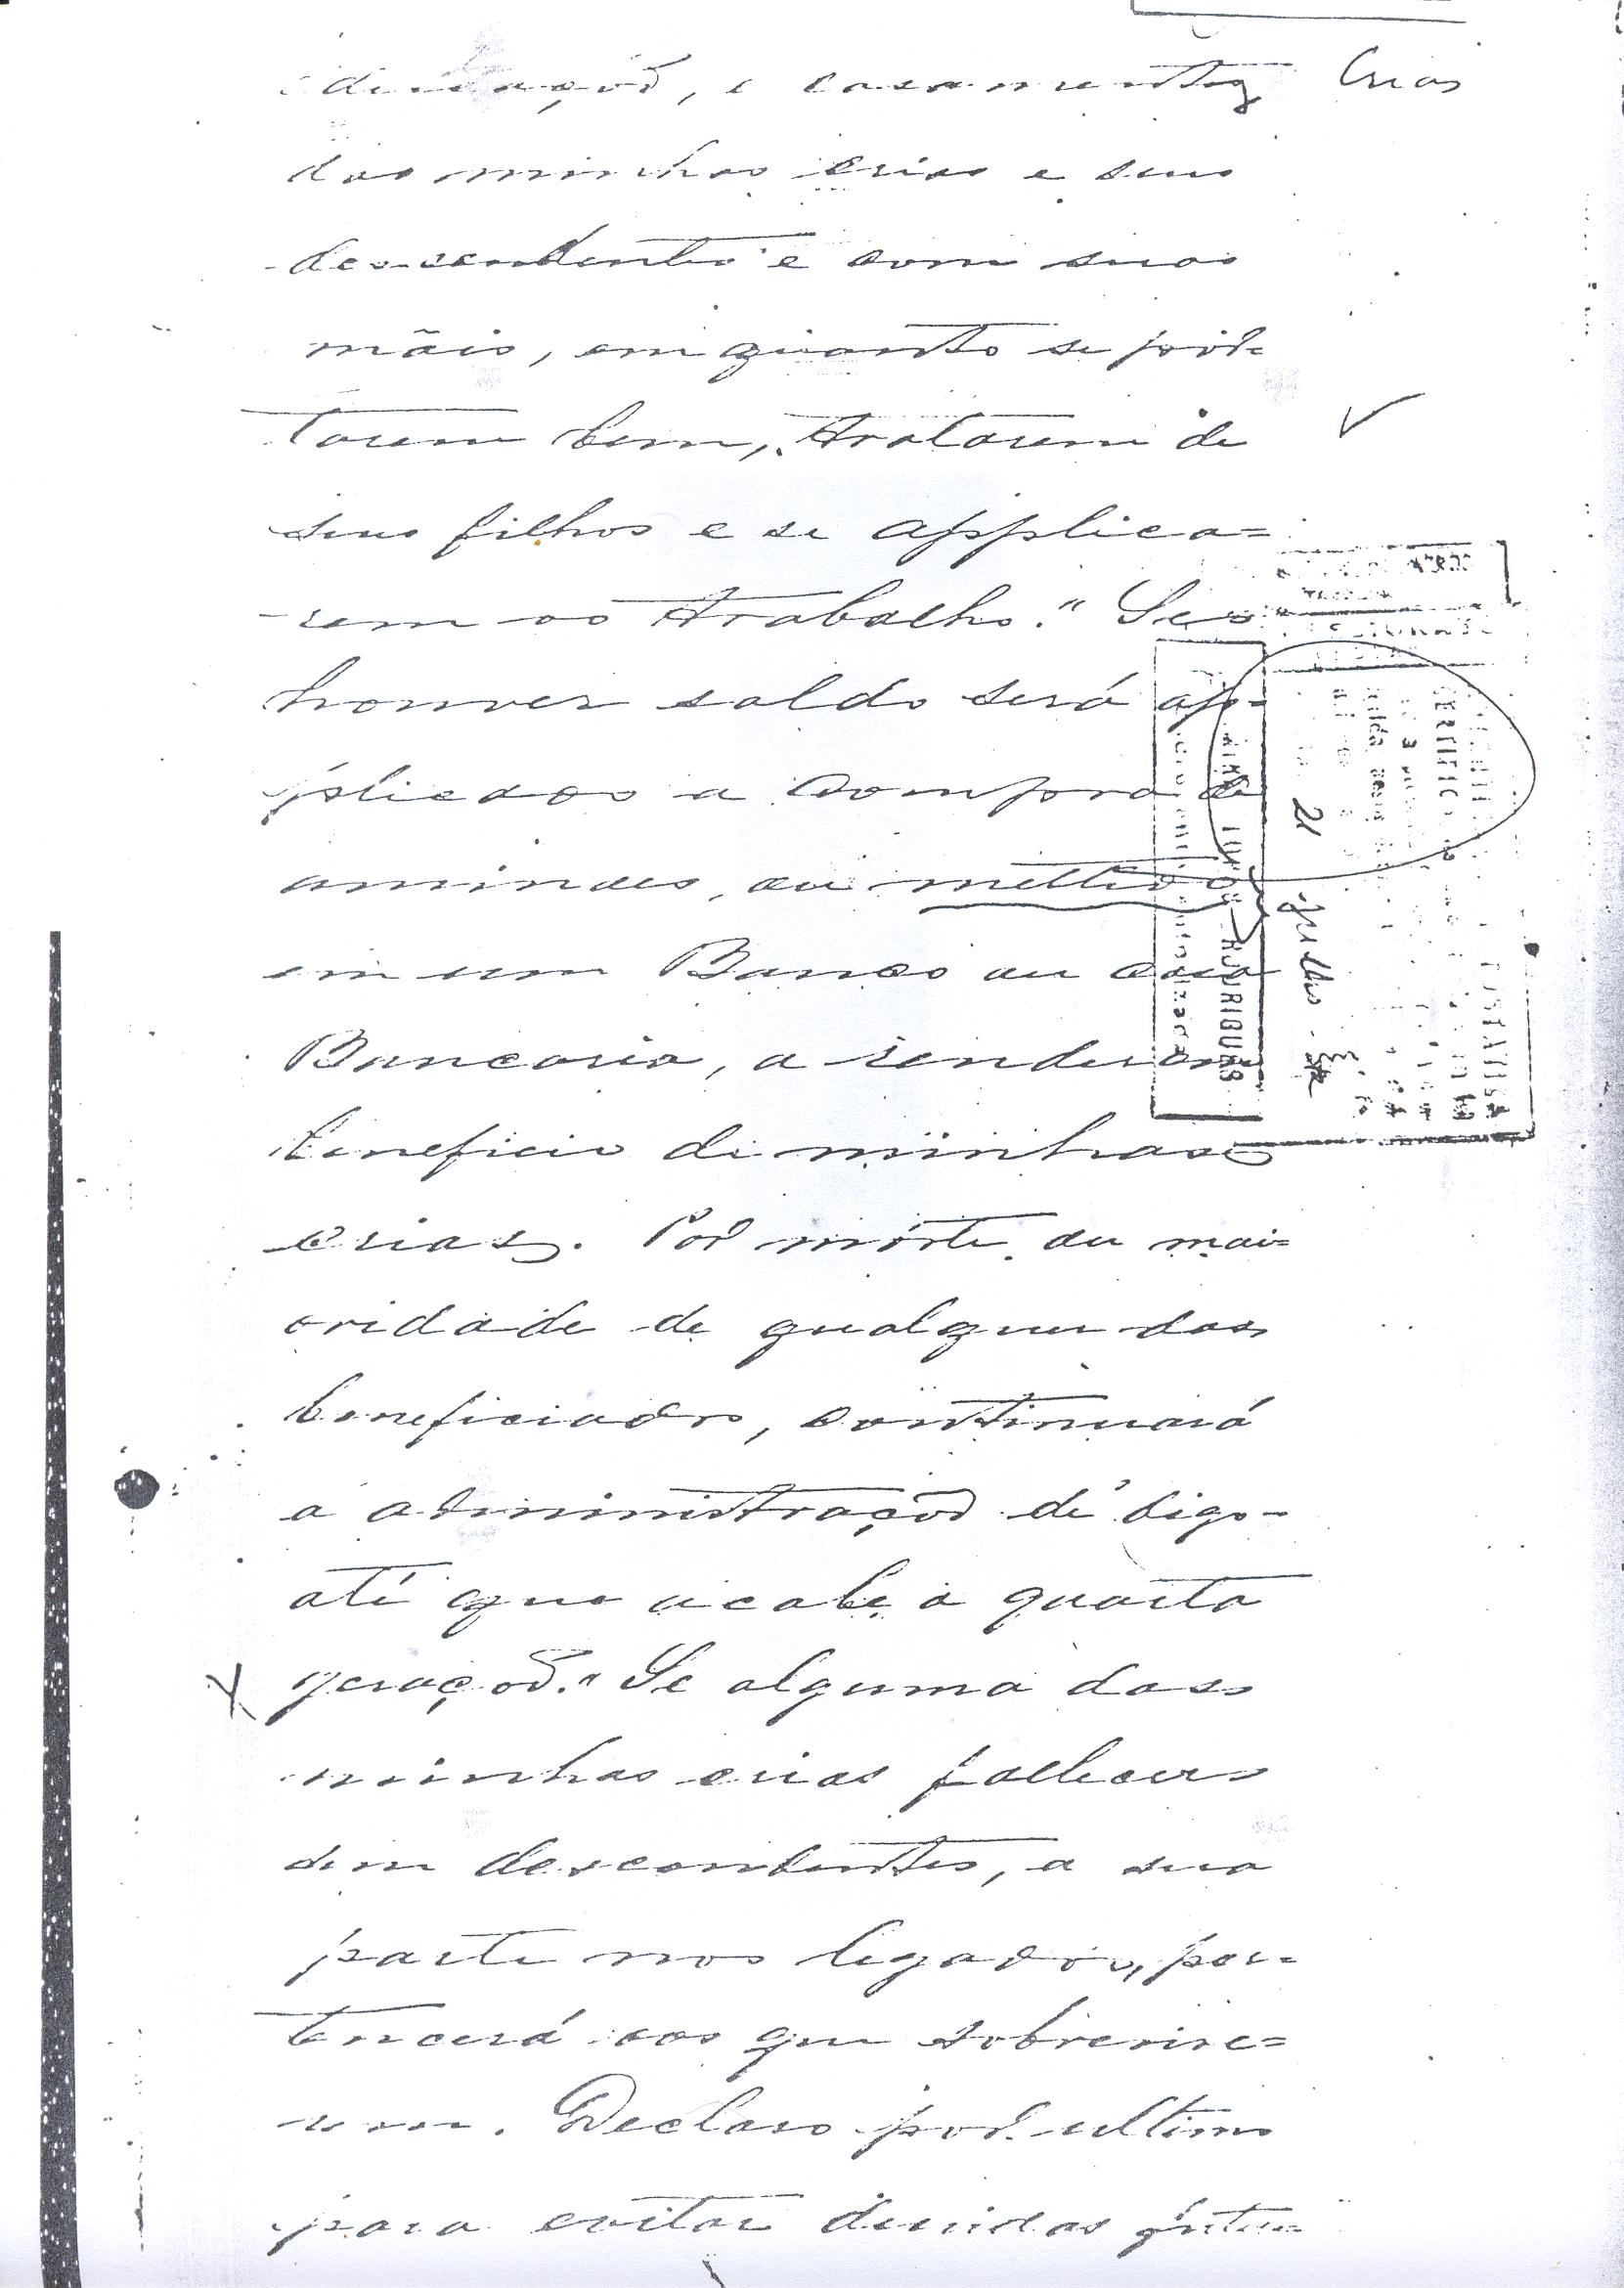 educaçaõ, e casamentos Crias
das minhas crias e seus
descendentes e com suas
mãis, emquanto se por=
tarem bem, tratarem de
seus filhos e se applica=
rem ao trabalho." Se
houver saldo será ap=
plicado a compra de
animaes, ou mettido
em um Banco ou casa
Bancaria, a render em
beneficio de minhas
crias. Por morte ou mai=
oridade de qualquer dos
beneficiados, continuará
a administraçaõ de digo-
até que acabe a quarta
X geraçaõ." Se alguma das
minhas crias fallecer
sem descendentes, a sua
parte nos legados, per=
tencerá aos que sobrevive=
rem. Declaro por ultimo
para evitar duvidas
CERTIFIC
21
Julho
RODRIGUES